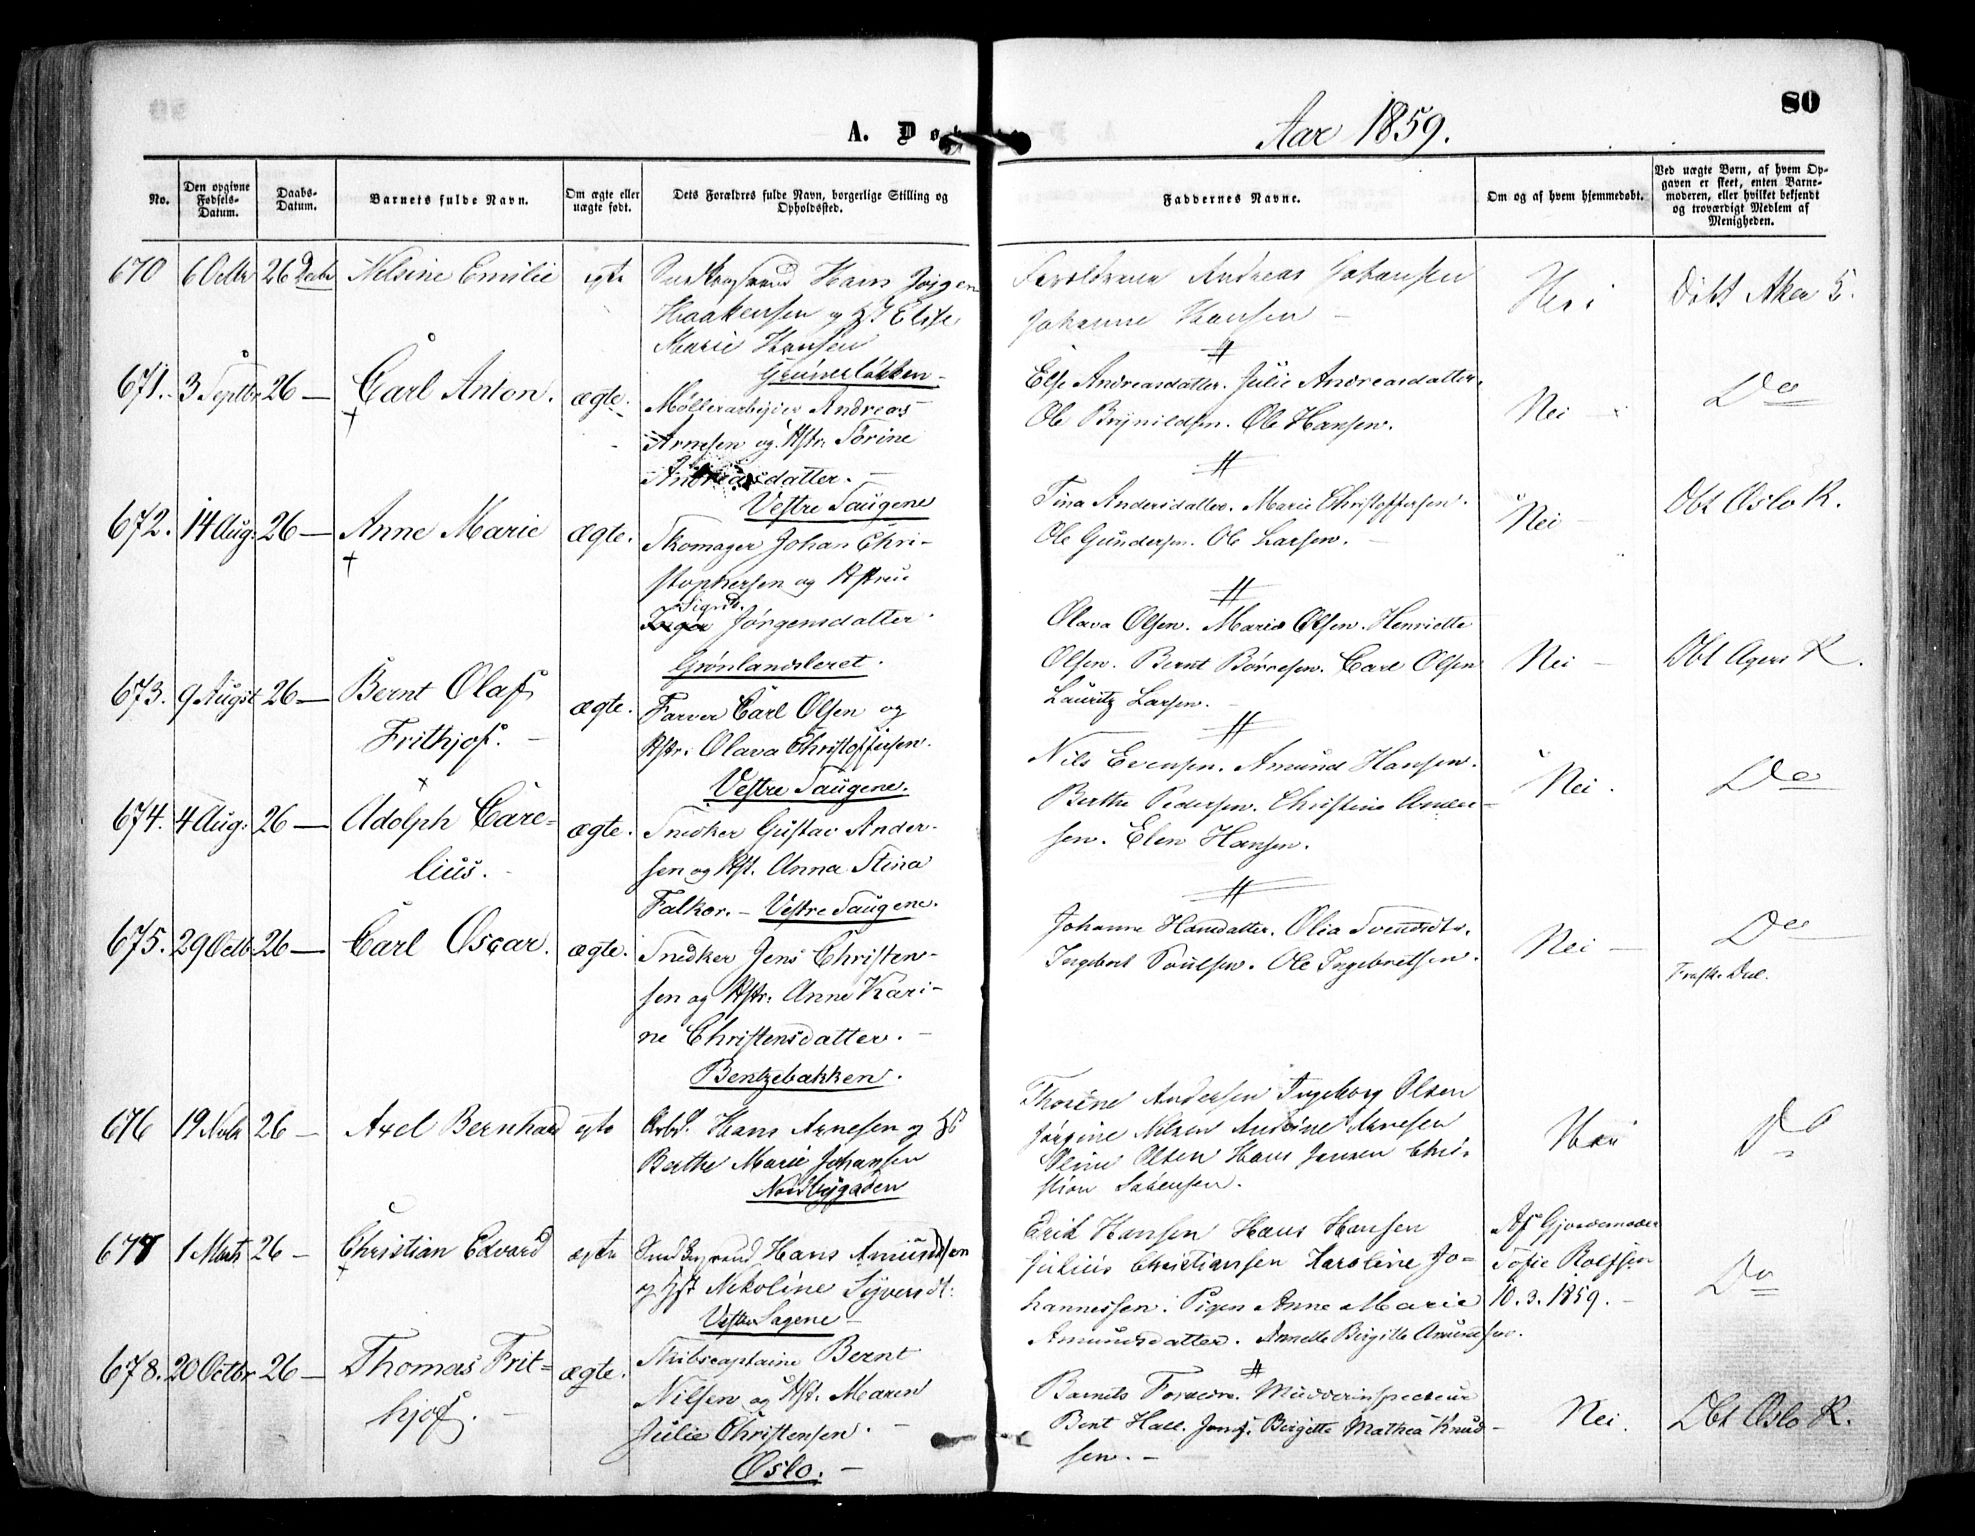 80
A. Døb
Aar 1859.
No.
Den opgivne Fødsels-Datum.
Daabs-Datum.
Barnets fulde Navn.
Om ægte eller uægte født.
Dets Forældres fulde Navn, borgerlige Stilling og Opholdssted.
Faddernes Navne.
Om og af hvem hjemmedøbt.
Ved uægte Børn, af hvem Opgaven er skeet, enten Barnemoderen, eller hvilket bekjendt og troværdigt Medlem af Menigheden.
670 6 Octbr 26 Decbr Nelsine Emilie egte
Hans Jørgen
Haakensen og Elise
Marie Hansen
Grünerløkken
Forældrene Andreas Johansen
Johanne Hansen
Nei
Døbt Aker K.
671. 3 Septbr 26 — Carl Anton. ægte.
Møllerarbeider Andreas
Arnesen og Hstr. Sørine
Andreasdatter. —
Vestre Saugene
Else Andreasdatter. Julie Andreasdatter.
Ole Brynildsen. Ole Hansen.
Nei —
Do
672. 14 Aug: 26 — Anne Marie ægte.
Skomager Johan Chri-
stophersen og Hstrue
Sigrid.
Inger Jørgensdatter.
Grønlandsleret.
Tina Andersdatter. Marie Christoffersen.
Ole Gundersen. Ole Larsen.
Nei —
Dbt Oslo K.
673. 9 Augst 26 — Bernt Olaf
Frithjof. —
ægte.
Farver Carl Olsen og
Hstr. Olava Christoffersen.
Vestre Saugene.
Olava Olsen. Marie Olsen. Henriette
Olsen. Bernt Børresen. Carl Olsen
Lauritz Larsen. —
Nei —
Dbt Agers K.
674. 4 Aug: 26 — Adolph Care-
lius.
ægte.
Snedker Gustav Ander-
sen og Hst. Anna Stina
Falkor. — Vestre Saugene.
Nils Evensen. Amund Hansen.
Berthe Pedersen. Christine Ander-
sen. Elen Hansen.
Nei.
Do
675. 29 Octb 26 — Carl Oscar. ægte.
Snedker Jens Christen-
sen og Hstr. Anne Kari-
ne Christensdatter. —
Bentzebakken.
Johanne Hansdatter. Olia Svendsdtr.
Ingebret Poulsen. Ole Ingebretsen.
Nei —
Do
676 19 Novb 26 — Axel Bernhard egte
Arbd. Hans Arnesen og
Berthe Marie Johansen
Nordbygaden
Thorine Andersen Ingeborg Olsen
Jørgine Nilsen Andrine Arnesen
Oline Olsen Hans Jensen Chri-
stian Sørensen.
Nei
Do
677 1 Marts 26 — Christian Edvard egte
Hans Amundsen
og Hst Nikoline Syversdt:
Vestre Sagene
Erik Hansen Hans Hansen
Julius Christiansen Karoline Jo-
hannessen. Pigen Anne Marie
Amundsdatter. Annette Birgitte Amundsen.
Af Gjordemoder
Sofie Rolfsen
10.3.1859. —
Do
678. 20 Octbr 26 — Thomas Frit-
hjof. —
ægte.
Skibscaptaine Bernt
Nilsen og Hst. Maren
Julie Christensen. —
Oslo. —
Barnets Forældre. Mudderinspecteur
Bent Hall. Jomf. Birgitte Mathea Knud-
sen. —
Nei.
Dbt Oslo K.